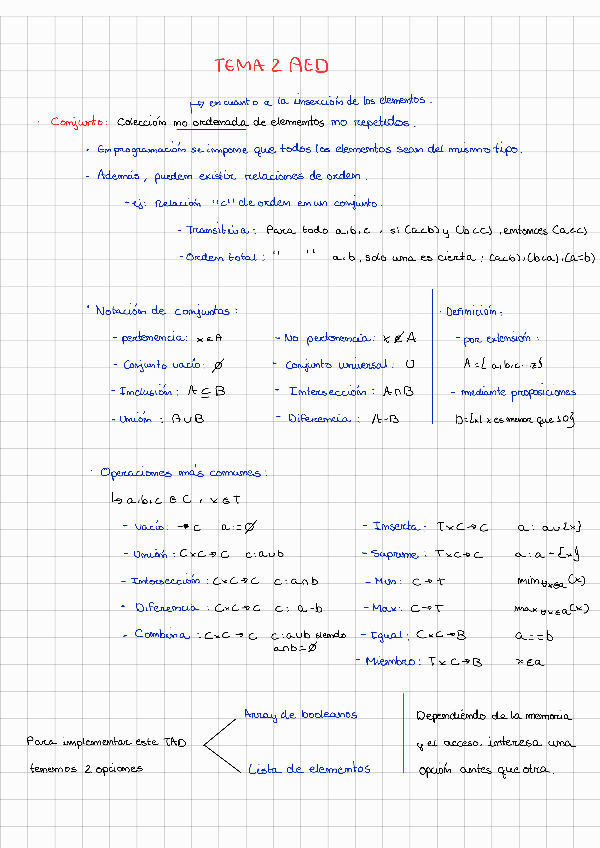 TEMA 2 AED
↳ en cuanto a la inserción de los elementos.
· Conjunto: Colección no ordenada de elementos no repetidos.
· En programación se impone que todos los elementos sean del mismo tipo.
- Además, pueden existir relaciones de orden.
- ej: Relación "<" de orden en un conjunto.
- Transitiva: Para todo a,b,c, si (a<b) y (b<c), entonces (a<c)
- Orden total: " " a,b, solo una es cierta: (a<b), (b<a), (a=b)
· Notación de conjuntos:
- pertenencia: x ∈ A
- No pertenencia: x ∉ A
- Conjunto vacío: ∅
- Conjunto universal: U
- Inclusión: A ⊆ B
- Intersección: A ∩ B
- Unión: A ∪ B
- Diferencia: A - B
· Definición:
- por extensión:
A = {a,b,c...z}
- mediante proposiciones
D = {x | x es menor que 10}
· Operaciones más comunes:
↳ a,b,c ∈ C, x ∈ T
- Vacío: → C a := ∅
- Unión: C x C → C c: a ∪ b
- Intersección: C x C → C c: a ∩ b
· Diferencia: C x C → C c: a - b
- Combina: C x C → C c: a ∪ b siendo
a ∩ b = ∅
- Inserta: T x C → C a: a ∪ {x}
- Suprime: T x C → C a: a - {x}
- Min: C → T min ∀x∈a (x)
- Max: C → T max ∀x∈a (x)
- Igual: C x C → B a == b
- Miembro: T x C → B x ∈ a
Para implementar este TAD
tenemos 2 opciones
Array de booleanos
Lista de elementos
Dependiendo de la memoria
y el acceso, interesa una
opción antes que otra.